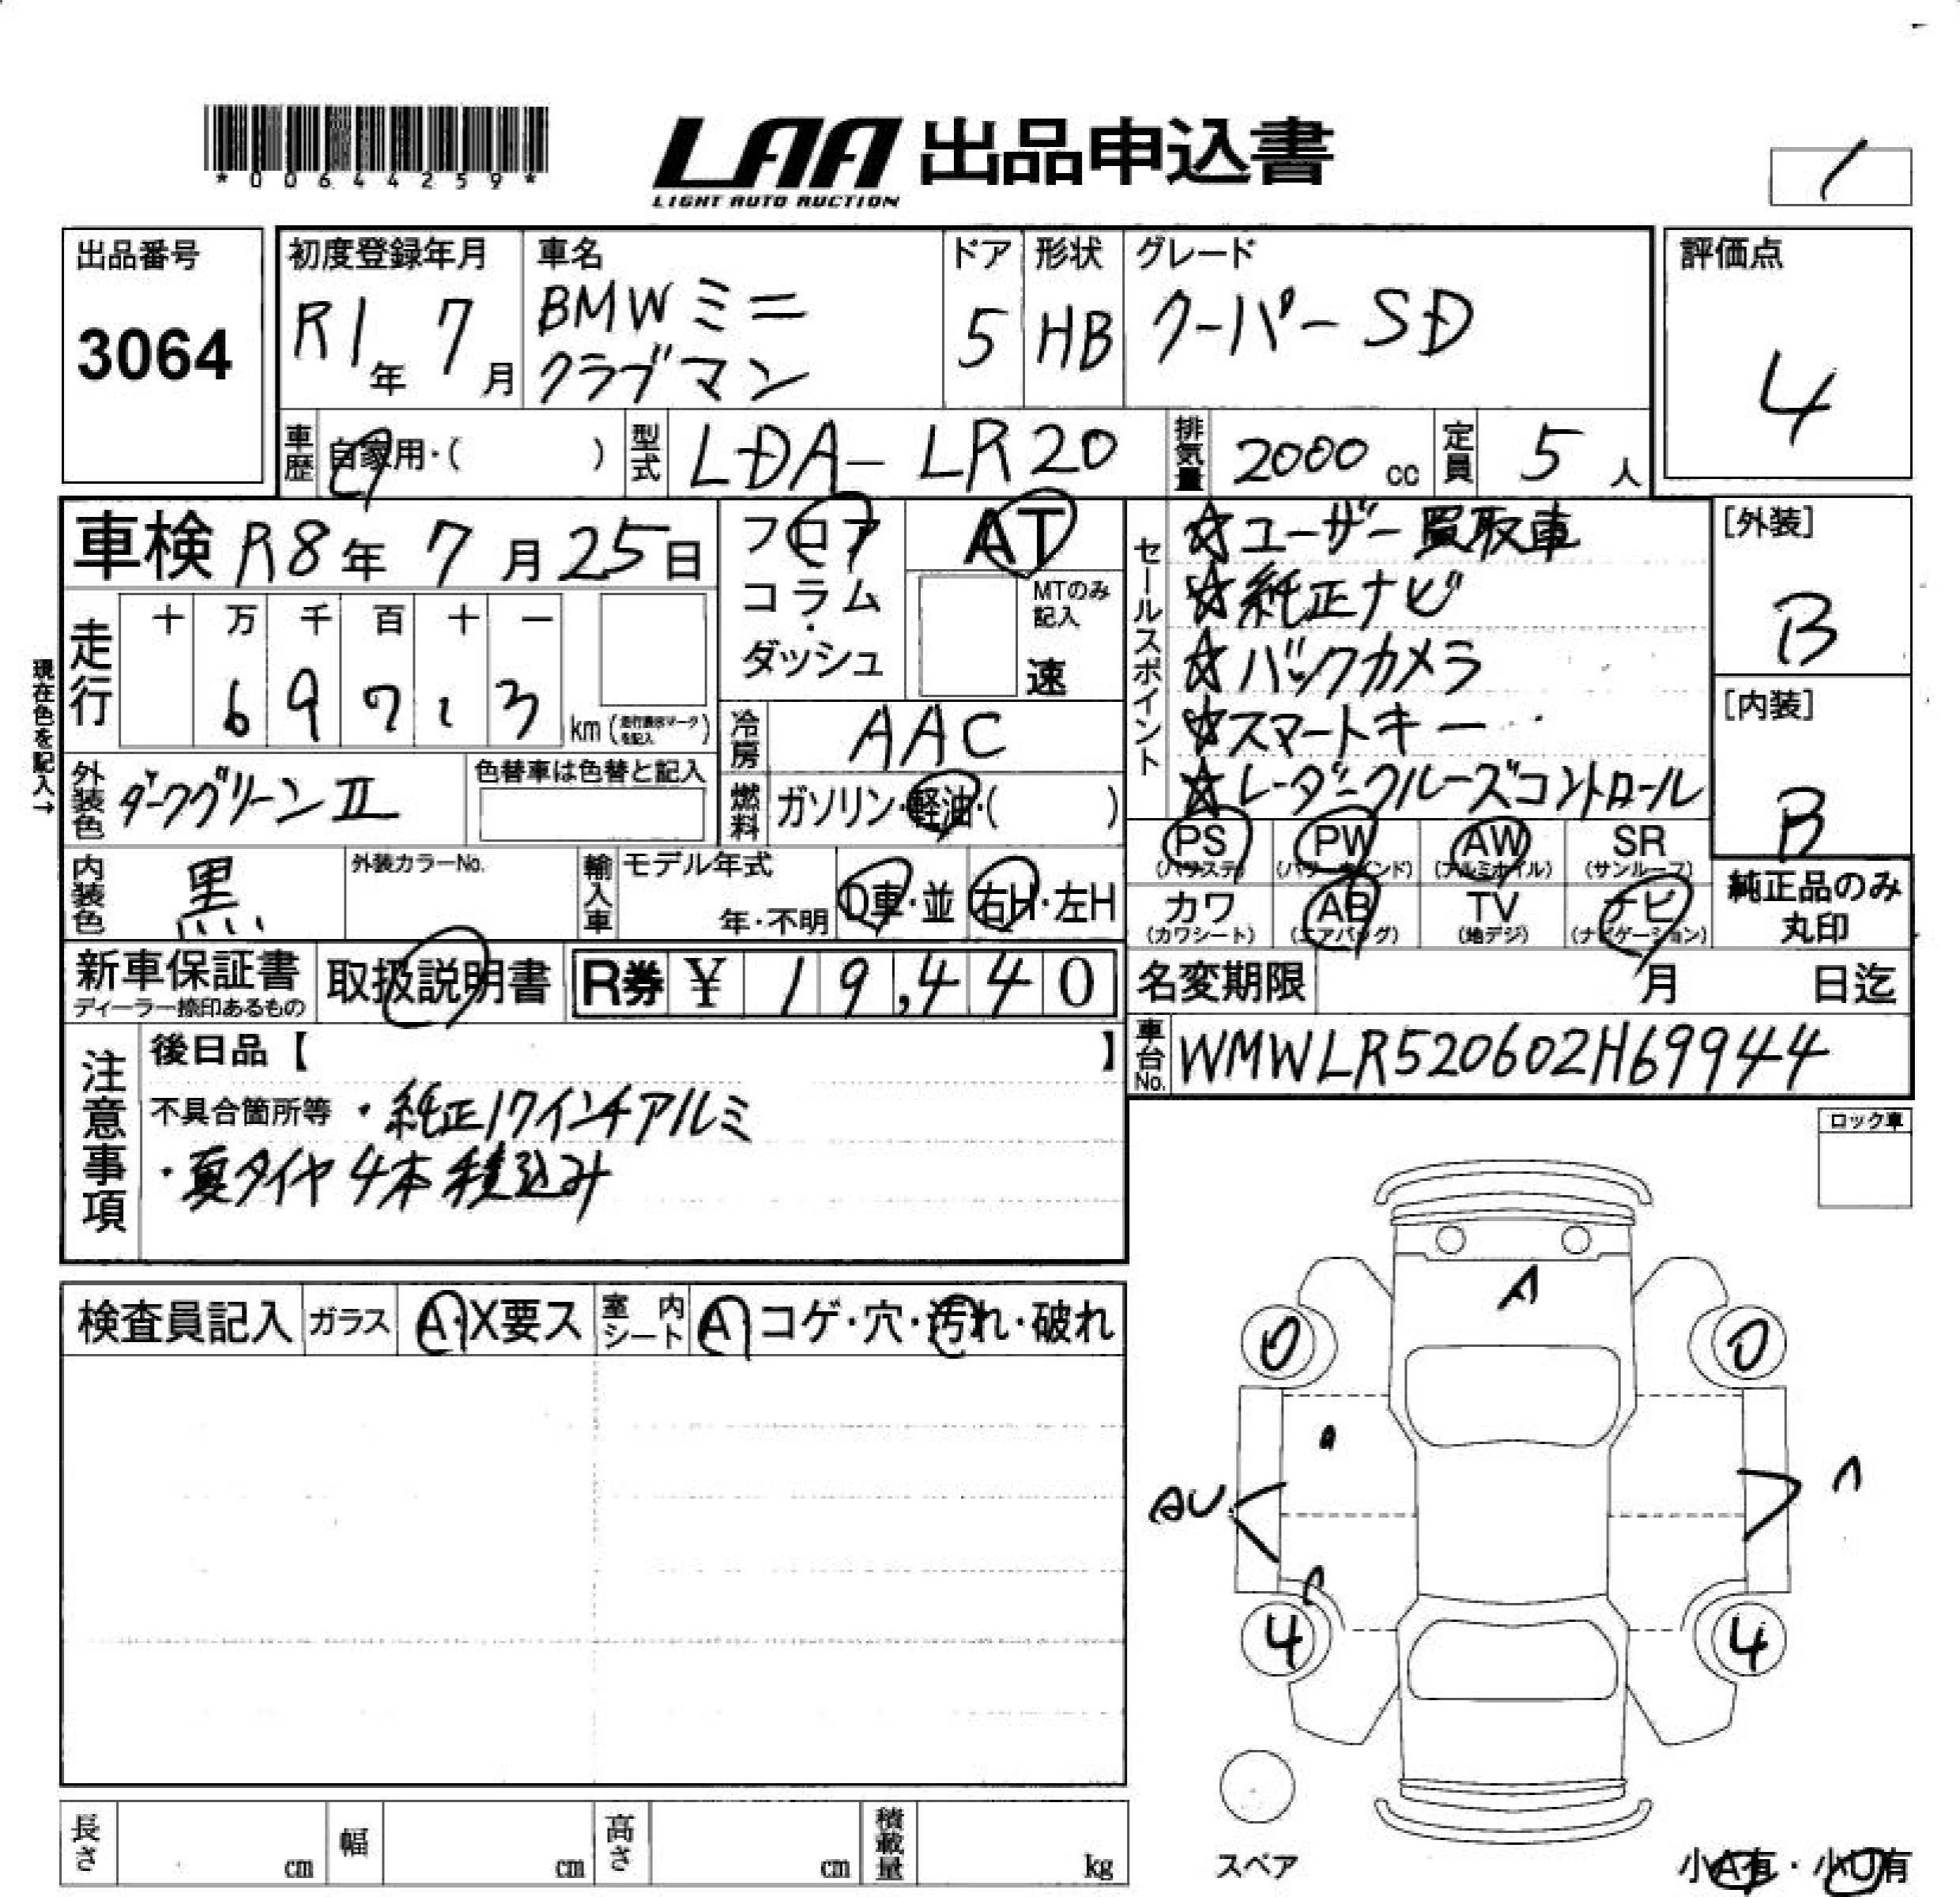 *00644259*
LAA 出品申込書
LIGHT AUTO AUCTION
出品番号
3064
初度登録年月
R1年 7月
車名
BMWミニ
クラブマン
ドア
5
形状
HB
グレード
クーパー SD
評価点
4
車歴 自家用・( )
型式 LDA-LR20
排気量 2000 cc
定員 5 人
車検 R8年 7月 25日
フロア
コラム
・
ダッシュ
AT
MTのみ
記入
速
セールスポイント
☆ユーザー買取車
☆純正ナビ
☆バックカメラ
☆スマートキー
☆レーダークルーズコントロール
[外装]
B
[内装]
B
現在色を記入→
走行
十 万 千 百 十 一
6 9 7 1 3
km(走行表示マークを記入)
冷房 AAC
燃料 ガソリン・軽油・( )
外装色 ダークグリーンⅡ
色替車は色替と記入
内装色 黒
外装カラーNo.
輸入車
モデル年式
年・不明
D車・並
右H・左H
PS
(パワステ)
PW
(パワーウインド)
AW
(アルミホイル)
SR
(サンルーフ)
カワ
(カワシート)
AB
(エアバッグ)
TV
(地デジ)
ナビ
(ナビゲーション)
純正品のみ
丸印
新車保証書
ディーラー捺印あるもの
取扱説明書
R券 ¥ 19,440
名変期限 月 日迄
車台No. WMWLR520602H69944
注意事項
後日品【 】
不具合箇所等 ・純正17インチアルミ
・夏タイヤ4本積込み
ロック車
検査員記入
ガラス A・X要ス
室内シート A コゲ・穴・汚れ・破れ
A
AU
4
4
スペア
小A有・小U有
長さ cm
幅 cm
高さ cm
積載量 kg